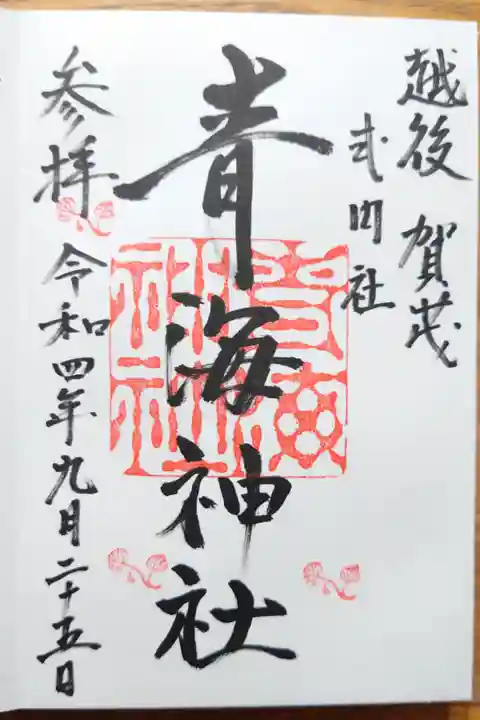 越後 賀茂
式内社
青海神社
参拝
令和四年九月二十五日
青海神社